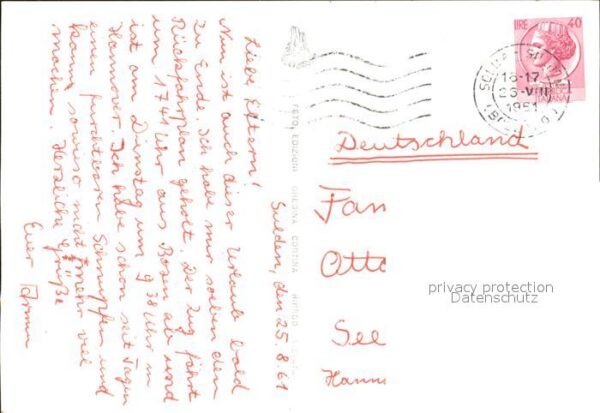 Sulden, den 25.8.61
Liebe Eltern!
Nun ist auch dieser Urlaub bald
zu Ende. Ich habe mir soeben den
Rückfahrplan geholt. Der Zug fährt
um 17 Uhr aus Bozen ab und
ist am Dienstag um 9 38 Uhr in
Hannover. Ich habe schon seit Tagen
einen furchtbaren Schnupfen und
kann sowieso nicht mehr viel
machen. Herzliche Grüße
Euer Armin
LIRE 40
16-17
1961
Deutschland
Fam
Otto
See
Hann
FOTO EDIZIONI GHEDINA CORTINA
privacy protection
Datenschutz